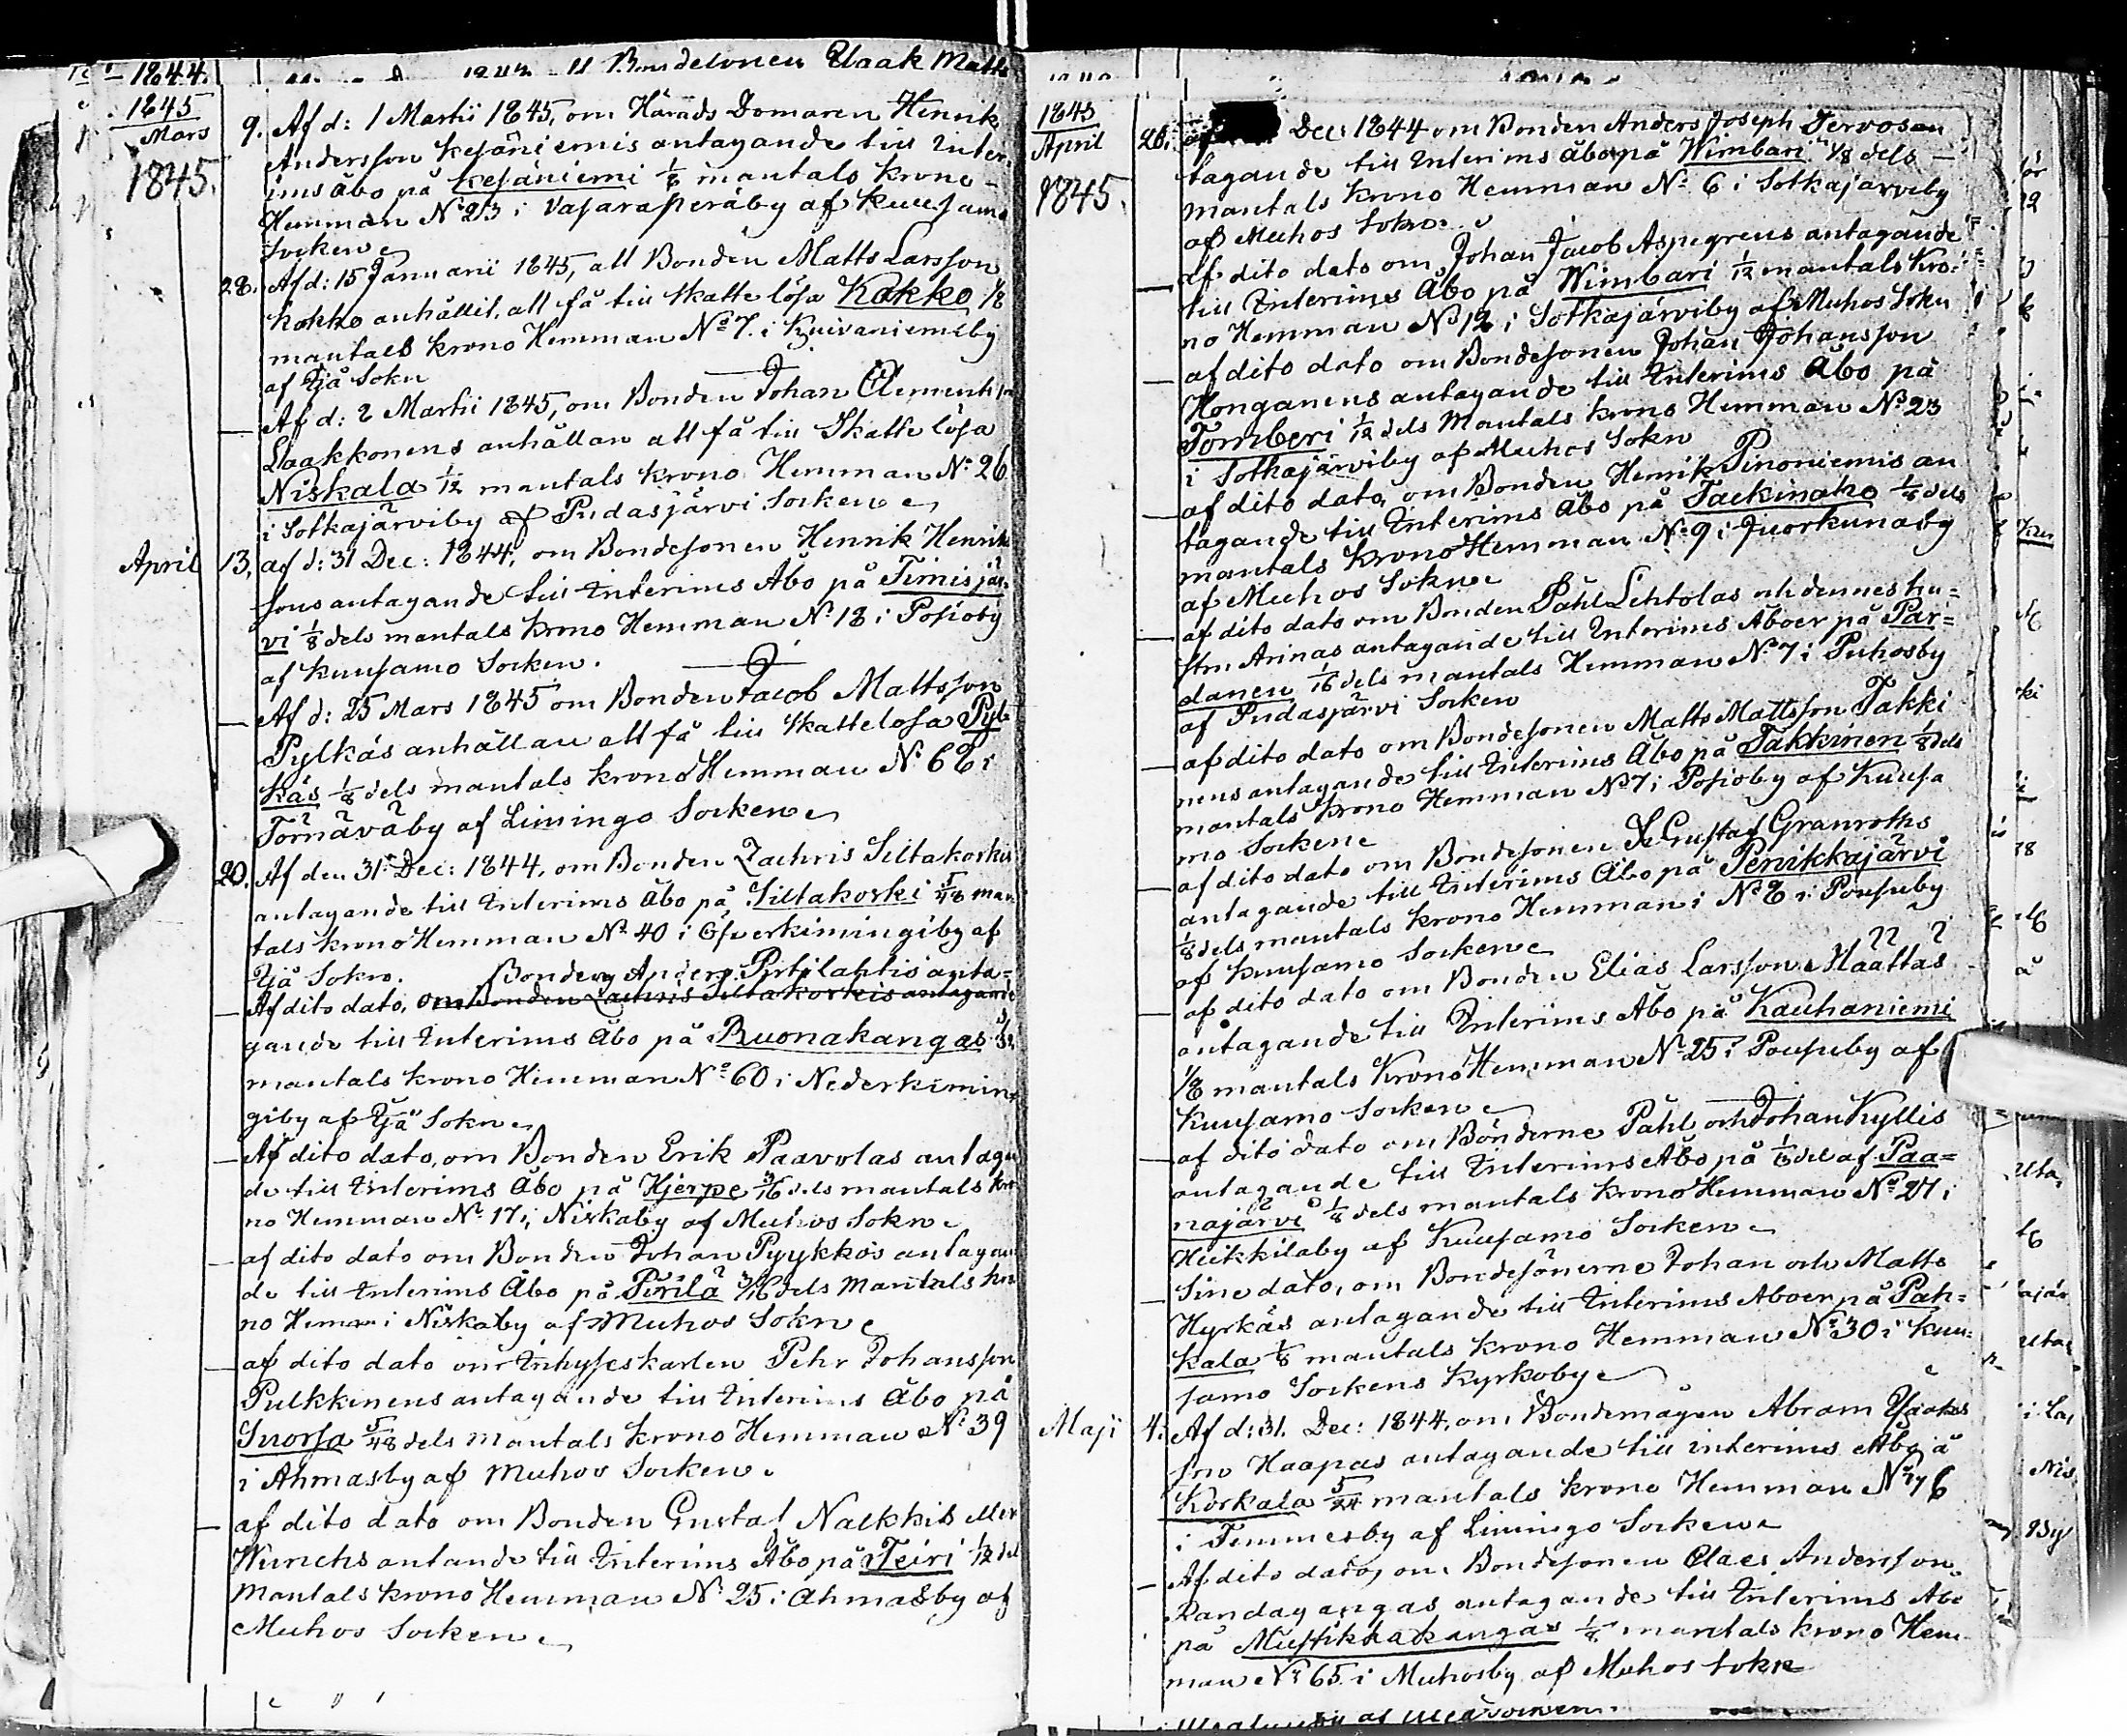 1844.
Bondesonen Isaak Matts
1845
Mars
1845.
9. Af d: 1 Martii 1845, om Härads Domaren Henrik
Andersson Kesäniemis antagande till Inter-
ims åbo på Kesäniemi 1/6 mantals krono-
Hemman No 23 i Vasaraperäby af Kuusamo
Socken
28. Af d: 15 Januarii 1845, att Bonden Matts Larsson
Kokko anhållit, att få till skatte lösa Kokko 1/8
mantals krono Hemman No 7. i Kuivaniemiby
af Ijå Sokn
— Af d: 2 Martii 1845, om Bonden Johan Clements
Laakkonens anhållan att få till Skatte lösa
Niskala 1/12 mantals krono Hemman No 26
i Sotkajärviby af Pudasjärvi Socken
April 13. af d: 31 Dec: 1844, om Bondesonen Henrik Henriks
sons antagande till Interims Åbo på Timisjär-
vi 1/8 dels mantals krono Hemman No 18 i Posioby
af Kuusamo Socken.
— Af d: 25 Mars 1845 om Bonden Jacob Mattsson
Pylkäs anhållan att få till Skattelösa Pyl-
käs 1/8 dels mantals krono Hemman No 62 i
Törnäväby af Limingo Socken
20. Af den 31 Dec: 1844, om Bonden Zachris Siltakoskis
antagande till Interims Åbo på Siltakoski 5/48 man
tals krono Hemman No 40 i Öfverkimingiby af
Ijå Sokn. Bonden Anders Purtilahtis anta-
— Af dito dato, om Bonden Zachris Siltakoskis antagande
gande till Interims Åbo på Ruonakangas
mantals krono Hemman No 60 i Nederkimin-
giby af Ijå Sokn
— Af dito dato, om Bonden Erik Paavolas antagan
de till Interims Åbo på Hjerpe 3/16 dels mantals kro
no Hemman No 17 i Niskaby af Muhos Sokn
— af dito dato om Bonden Johan Pyykkös antagan
de till Interims Åbo på Pirilä 3/16 dels Mantals kro
no Heman i Niskaby af Muhos Sokn
— af dito dato om Inhyseskarlen Pehr Johansson
Pulkkinens antagande till Interims Åbo på
Suorsa 5/48 dels mantals krono Hemman No 39
i Ahmasby af Muhos Socken.
— af dito dato om Bonden Gustaf Nalkkis eller
Wunchs antande till Interims Åbo på Teiri 1/12 del
Mantals krono Hemman No 25 i Ahmasby af
Muhos Socken
1845
April
1845.
26. af Dec: 1844 om Bonden Anders Joseph Tervos an
tagande till Interims åbo på Wimbari 1/8 dels —
mantals krono Hemman No 6 i Sotkajärviby
af Muhos Sokn.
— af dito dato om Johan Jacob Aspegrens antagande
till Interims Åbo på Wimbari 1/12 mantals Kro-
no Hemman No 12 i Sotkajärviby af Muhos Sokn
— af dito dato om Bondesonen Johan Johansson
Honganens antagande till Interims Åbo på
Tomberi 1/12 dels Mantals krono Hemman No 23
i Sotkajärviby af Muhos Sokn
— af dito dato, om Bonden Henrik Pinoniemis an
tagande till Interims Åbo på Tackinaho 1/8 dels
mantals Krono Hemman No 9 i Juorkunaby
af Muhos Sokn
— af dito dato om Bonden Påhl Lehtolas och dennes hu-
stru Annas antagande till Interims Åboer på Par-
danen 1/16 dels mantals Hemman No 7 i Puhosby
af Pudasjärvi Socken
— af dito dato om Bondesonen Matts Mattsson Takki
nens antagande till Interims Åbo på Takkinen 1/8 dels
mantals krono Hemman No 7 i Posioby af Kuusa
mo Socken
— af dito dato om Bondesonen Gustaf Granroths
antagande till Interims Åbo på Penikkajärvi
1/8 dels mantals krono Hemman i No 8 i Poussuby
af Kuusamo Socken
— af dito dato om Bonden Elias Larsson Määttäs
antagande till Interims Åbo på Kauhaniemi
1/8 mantals Krono Hemman No 25 i Poussuby af
Kuusamo Socken
— af dito dato om Bönderne Påhl och Johan Kyllis
antagande till Interims Åbo på 1/6 del af Paa-
najärvi 1/8 dels mantals krono Hemman No 27 i
Heikkiläby af Kuusamo Socken
— Sine dato, om Bondesönerne Johan och Matts
Hyrkäs antagande till Interims Åboer på Pah-
kala 1/8 mantals krono Hemman No 30 i Kuu-
samo Sockens Kyrkoby
Maji 4. Af d: 31. Dec: 1844, om Bondemågen Abram Isaaks
son Haapas antagande till interims Åbo å
Korkala 5/24 mantals krono Hemman No 76
i Temmesby af Limingo Socken
— Af dito dato, om Bondesonen Claes Andersson
Randagangas antagande till Interims Åbo
på Mustikkakangas 1/8 mantals krono Hem-
man No 65 i Muhosby af Muhos Sokn